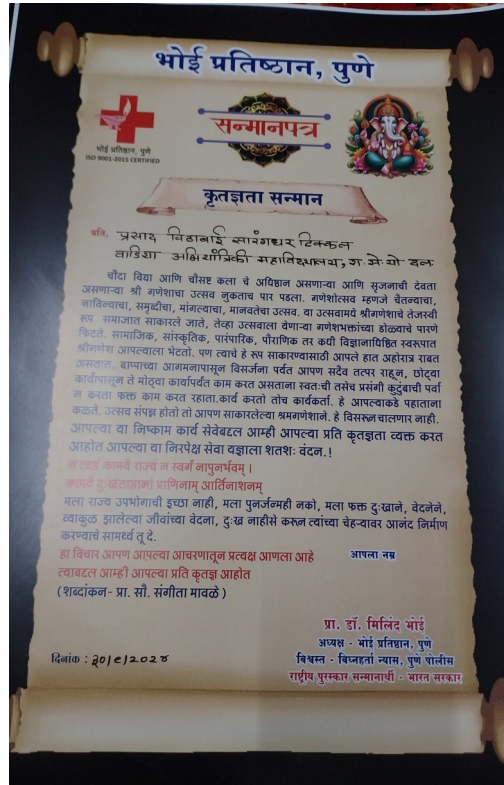 भोई प्रतिष्ठान, पुणे
भोई प्रतिष्ठान, पुणे
ISO 9001-2015 CERTIFIED
सन्मानपत्र
कृतज्ञता सन्मान
प्रति, प्रसाद विठाबाई सारंगधर टिक्कन
वाडिया अभियांत्रिकी महाविद्यालय, रा.से.यो दल
चौदा विद्या आणि चौसष्ट कला चे अधिष्ठान असणाऱ्या आणि सृजनाची देवता
असणाऱ्या श्री गणेशाचा उत्सव नुकताच पार पडला. गणेशोत्सव म्हणजे चैतन्याचा,
नाविन्याचा, समृद्धीचा, मांगल्याचा, मानवतेचा उत्सव. या उत्सवामधे श्रीगणेशाचे तेजस्वी
रूप समाजात साकारले जाते, तेव्हा उत्सवाला येणाऱ्या गणेशभक्तांच्या डोळ्याचे पारणे
फिटते. सामाजिक, सांस्कृतिक, पारंपारिक, पौराणिक तर कधी विज्ञानाधिष्ठित स्वरूपात
श्रीगणेश आपल्याला भेटतो. पण त्याचे हे रूप साकारण्यासाठी आपले हात अहोरात्र राबत
असतात. बाप्पाच्या आगमनापासून विसर्जना पर्यंत आपण सदैव तत्पर राहून, छोट्या
कार्यापासून ते मोठ्या कार्यापर्यंत काम करत असताना स्वतःची तसेच प्रसंगी कुटुंबाची पर्वा
न करता फक्त काम करत रहाता.कार्य करतो तोच कार्यकर्ता. हे आपल्याकडे पहाताना
कळते. उत्सव संपन्न होतो तो आपण साकारलेल्या श्रमगणेशाने. हे विसरून चालणार नाही.
आपल्या या निष्काम कार्य सेवेबद्दल आम्ही आपल्या प्रति कृतज्ञता व्यक्त करत
आहोत आपल्या या निरपेक्ष सेवा यज्ञाला शतशः वंदन.!
न त्वहं कामये राज्यं न स्वर्गं नापुनर्भवम् ।
कामये दुःखतप्तानां प्राणिनाम् आर्तिनाशनम्
मला राज्य उपभोगाची इच्छा नाही, मला पुनर्जन्मही नको, मला फक्त दुःखाने, वेदनेने,
व्याकुळ झालेल्या जीवांच्या वेदना, दुःख नाहीसे करून त्यांच्या चेहऱ्यावर आनंद निर्माण
करण्याचे सामर्थ्य तू दे.
हा विचार आपण आपल्या आचरणातून प्रत्यक्ष आणला आहे
त्याबद्दल आम्ही आपल्या प्रति कृतज्ञ आहोत
(शब्दांकन- प्रा. सौ. संगीता मावळे )
आपला नम्र
प्रा. डॉ. मिलिंद भोई
अध्यक्ष - भोई प्रतिष्ठान, पुणे
विश्वस्त - विघ्नहर्ता न्यास, पुणे पोलीस
राष्ट्रीय पुरस्कार सन्मानार्थी - भारत सरकार
दिनांक : ३०/९/२०२४